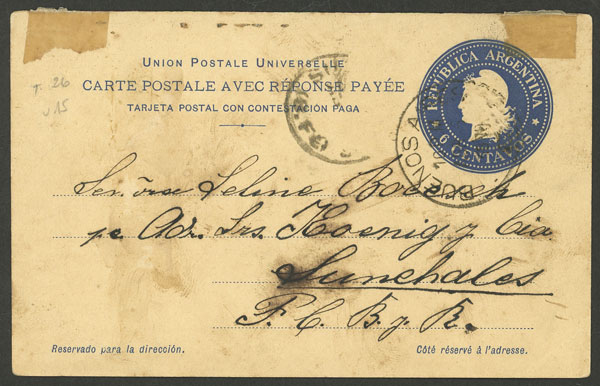 UNION POSTALE UNIVERSELLE
CARTE POSTALE AVEC RÉPONSE PAYÉE
TARJETA POSTAL CON CONTESTACIÓN PAGA
REPUBLICA ARGENTINA
6 CENTAVOS
BUENOS A
T. 26
v 15
Señora Seline
pr Adr. Srs. Koenig y Cia
Sunchales
F. C. B. y R.
Reservado para la dirección.
Côté réservé à l'adresse.